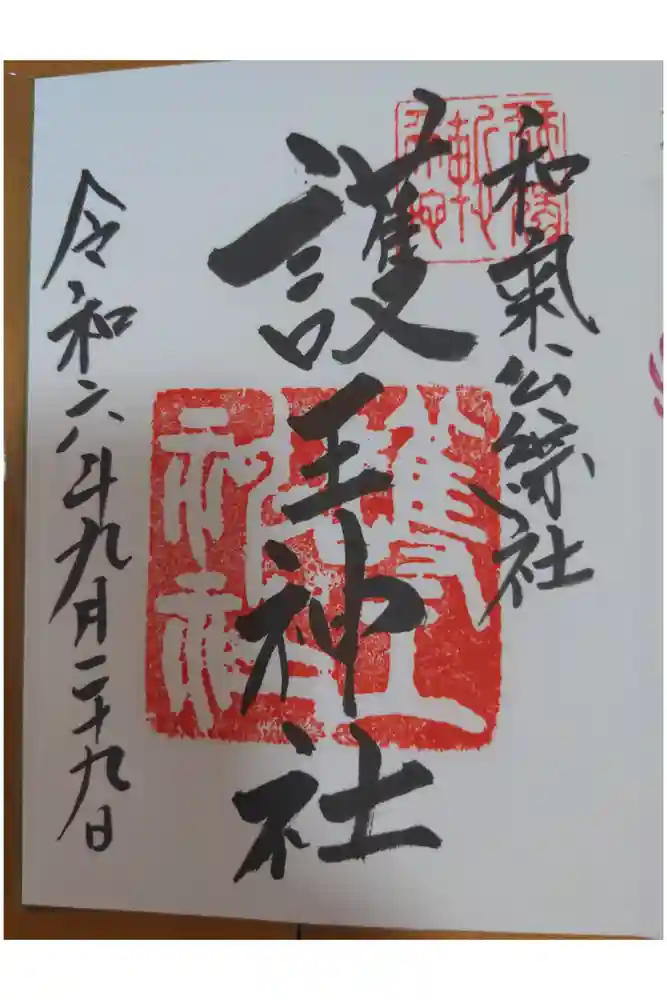 和氣公綜社
護王神社
令和六年九月二十九日
護王
神社